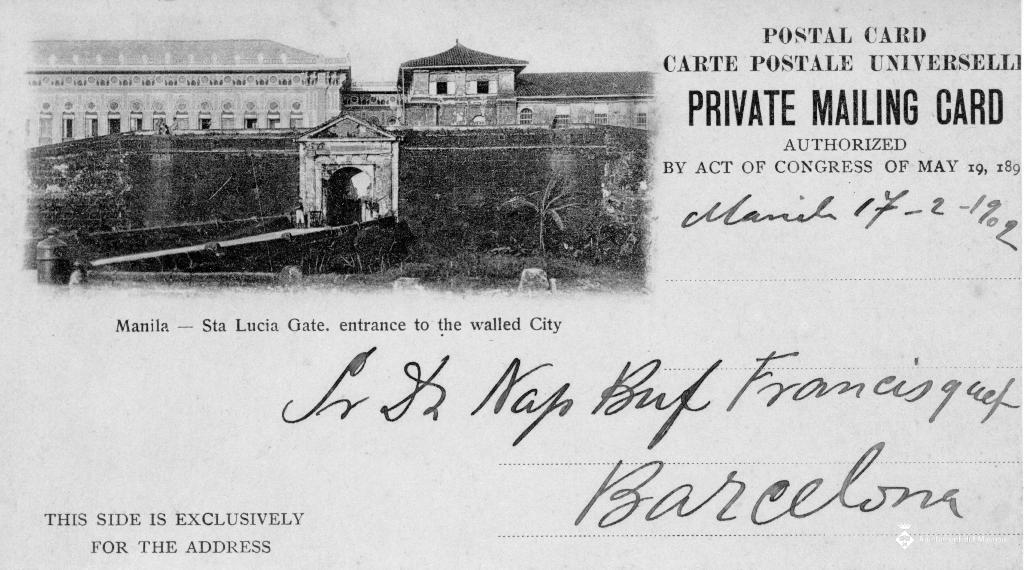 POSTAL CARD
CARTE POSTALE UNIVERSELL
PRIVATE MAILING CARD
AUTHORIZED
BY ACT OF CONGRESS OF MAY 19, 189
Manila 17-2-1902
Manila — Sta Lucia Gate. entrance to the walled City
Sr Dn Nap Buf Francisquet
Barcelona
THIS SIDE IS EXCLUSIVELY
FOR THE ADDRESS